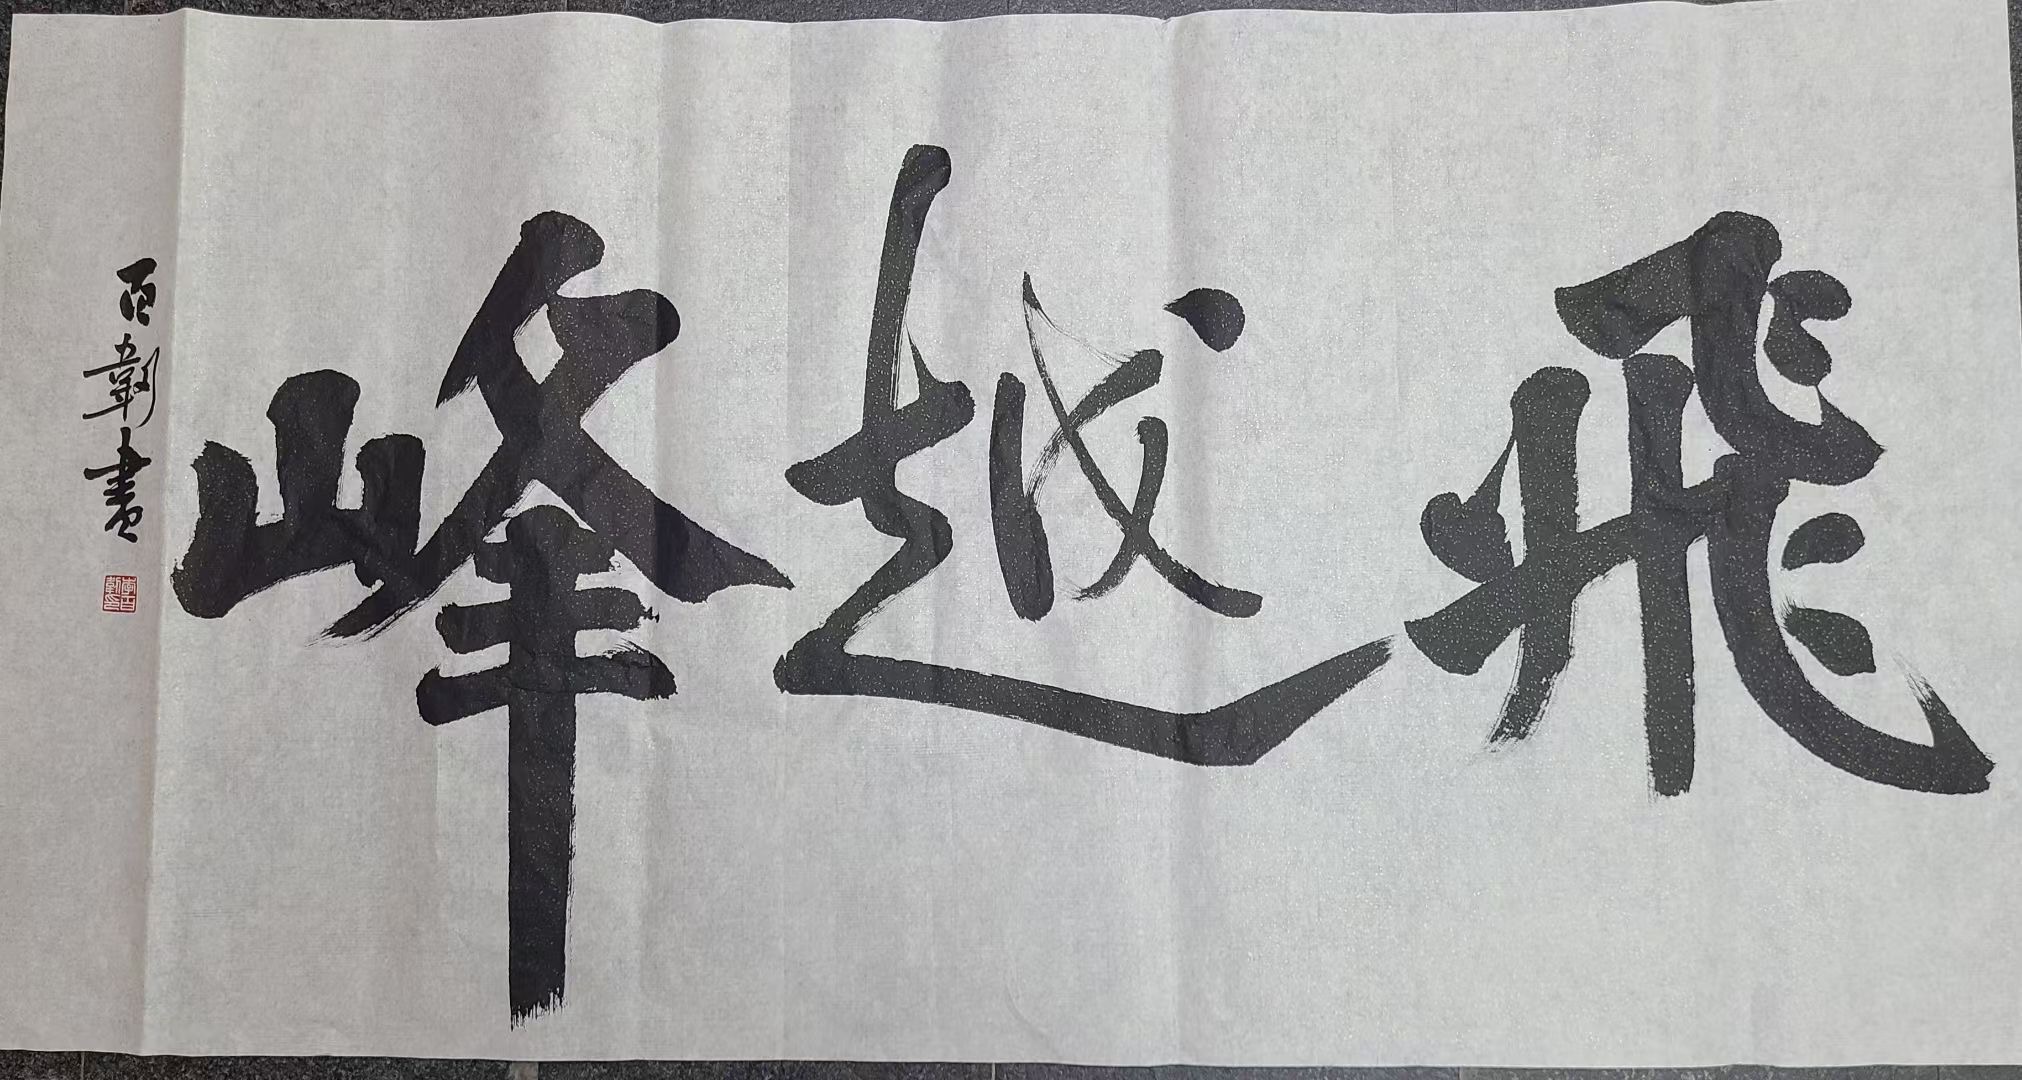 飛越峰
百勤書